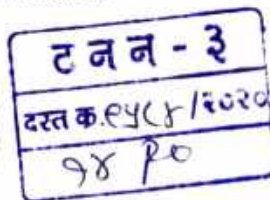 ट न न - ३
दस्त क.९५८४/२०२०
१४